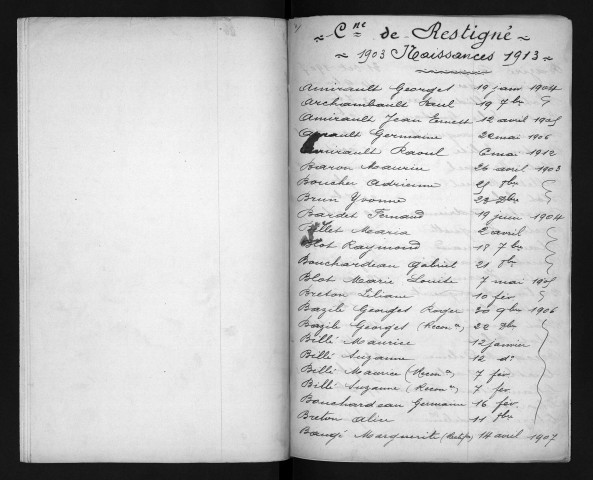 Cne de Restigné
1903 Naissances 1913
Amirault Georges 19 janv 1904
Archambault Paul 19 7bre
Amirault Jean Ernest 12 avril 1905
Germaine 22 mai 1906
Amirault Raoul 6 mai 1912
Baron Maurice 26 avril 1903
Boucher Adrienne 25 8bre
Brun Yvonne 22 Xbre
Bardet Fernand 19 juin 1904
Billet Maria 2 avril
Blot Raymond 18 7bre
Bouchardeau Gabriel 21 8bre
Blot Marie Louise 7 mai 1905
Breton Liliane 10 fév
Bazile Georges Roger 20 9bre 1906
Bazile Georges (Recon ce) 22 Xbre
Billé Maurice 12 janvier
Billé Suzanne 12 do
Billé Maurice (Recon ce) 7 fév
Billé Suzanne (Recon ce) 7 fév
Bouchardeau Germaine 16 fév
Breton Aline 11 8bre
Baugé Marguerite 14 avril 1907